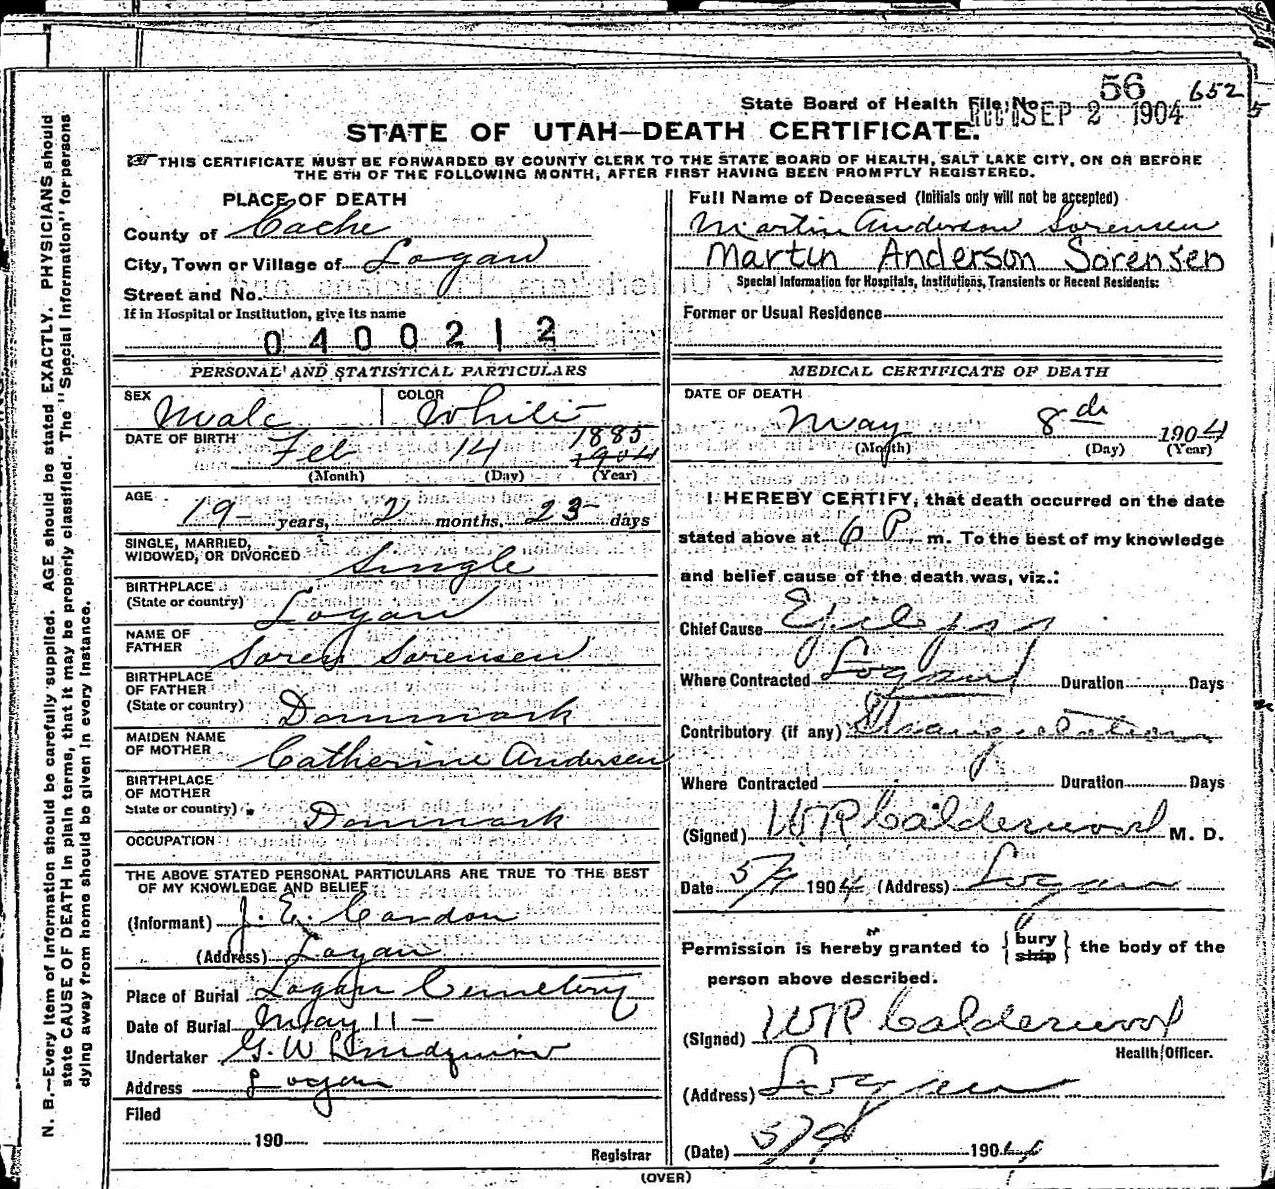 56 6525
State Board of Health File No.
SEP 2 1904
STATE OF UTAH—DEATH CERTIFICATE.
THIS CERTIFICATE MUST BE FORWARDED BY COUNTY CLERK TO THE STATE BOARD OF HEALTH, SALT LAKE CITY, ON OR BEFORE
THE 5TH OF THE FOLLOWING MONTH, AFTER FIRST HAVING BEEN PROMPTLY REGISTERED.
N. B.—Every item of information should be carefully supplied. AGE should be stated EXACTLY. PHYSICIANS should
state CAUSE OF DEATH in plain terms, that it may be properly classified. The "Special Information" for persons
dying away from home should be given in every instance.
PLACE OF DEATH
County of Cache
City, Town or Village of Logan
Street and No.
If in Hospital or Institution, give its name
0400212
PERSONAL AND STATISTICAL PARTICULARS
SEX Male COLOR White
DATE OF BIRTH Feb 14 1885 1904
(Month) (Day) (Year)
AGE
19 years, 2 months, 23 days
SINGLE, MARRIED,
WIDOWED, OR DIVORCED Single
BIRTHPLACE
(State or country) Logan
NAME OF
FATHER Soren Sorensen
BIRTHPLACE
OF FATHER
(State or country) Danmark
MAIDEN NAME
OF MOTHER Catherine Andersen
BIRTHPLACE
OF MOTHER
State or country) Danmark
OCCUPATION
THE ABOVE STATED PERSONAL PARTICULARS ARE TRUE TO THE BEST
OF MY KNOWLEDGE AND BELIEF
(Informant) J. E. Cardon
(Address) Logan
Place of Burial Logan Cemetery
Date of Burial May 11 —
Undertaker G. W. Lindquist
Address Logan
Filed
190
Registrar
Full Name of Deceased (Initials only will not be accepted)
Martin Anderson Sorensen
Martin Anderson Sorensen
Special Information for Hospitals, Institutions, Transients or Recent Residents:
Former or Usual Residence
MEDICAL CERTIFICATE OF DEATH
DATE OF DEATH
May 8th 1904
(Month) (Day) (Year)
I HEREBY CERTIFY, that death occurred on the date
stated above at 6 P. m. To the best of my knowledge
and belief cause of the death was, viz.:
Chief Cause Epilepsy
Where Contracted Logan Duration Days
Contributory (if any) Strangulation
Where Contracted Duration Days
(Signed) W R Calderwood M. D.
Date 5/9 1904 (Address) Logan
Permission is hereby granted to { bury ship } the body of the
person above described.
(Signed) W R Calderwood
Health Officer.
(Address) Logan
(Date) 5/9 1904
(OVER)